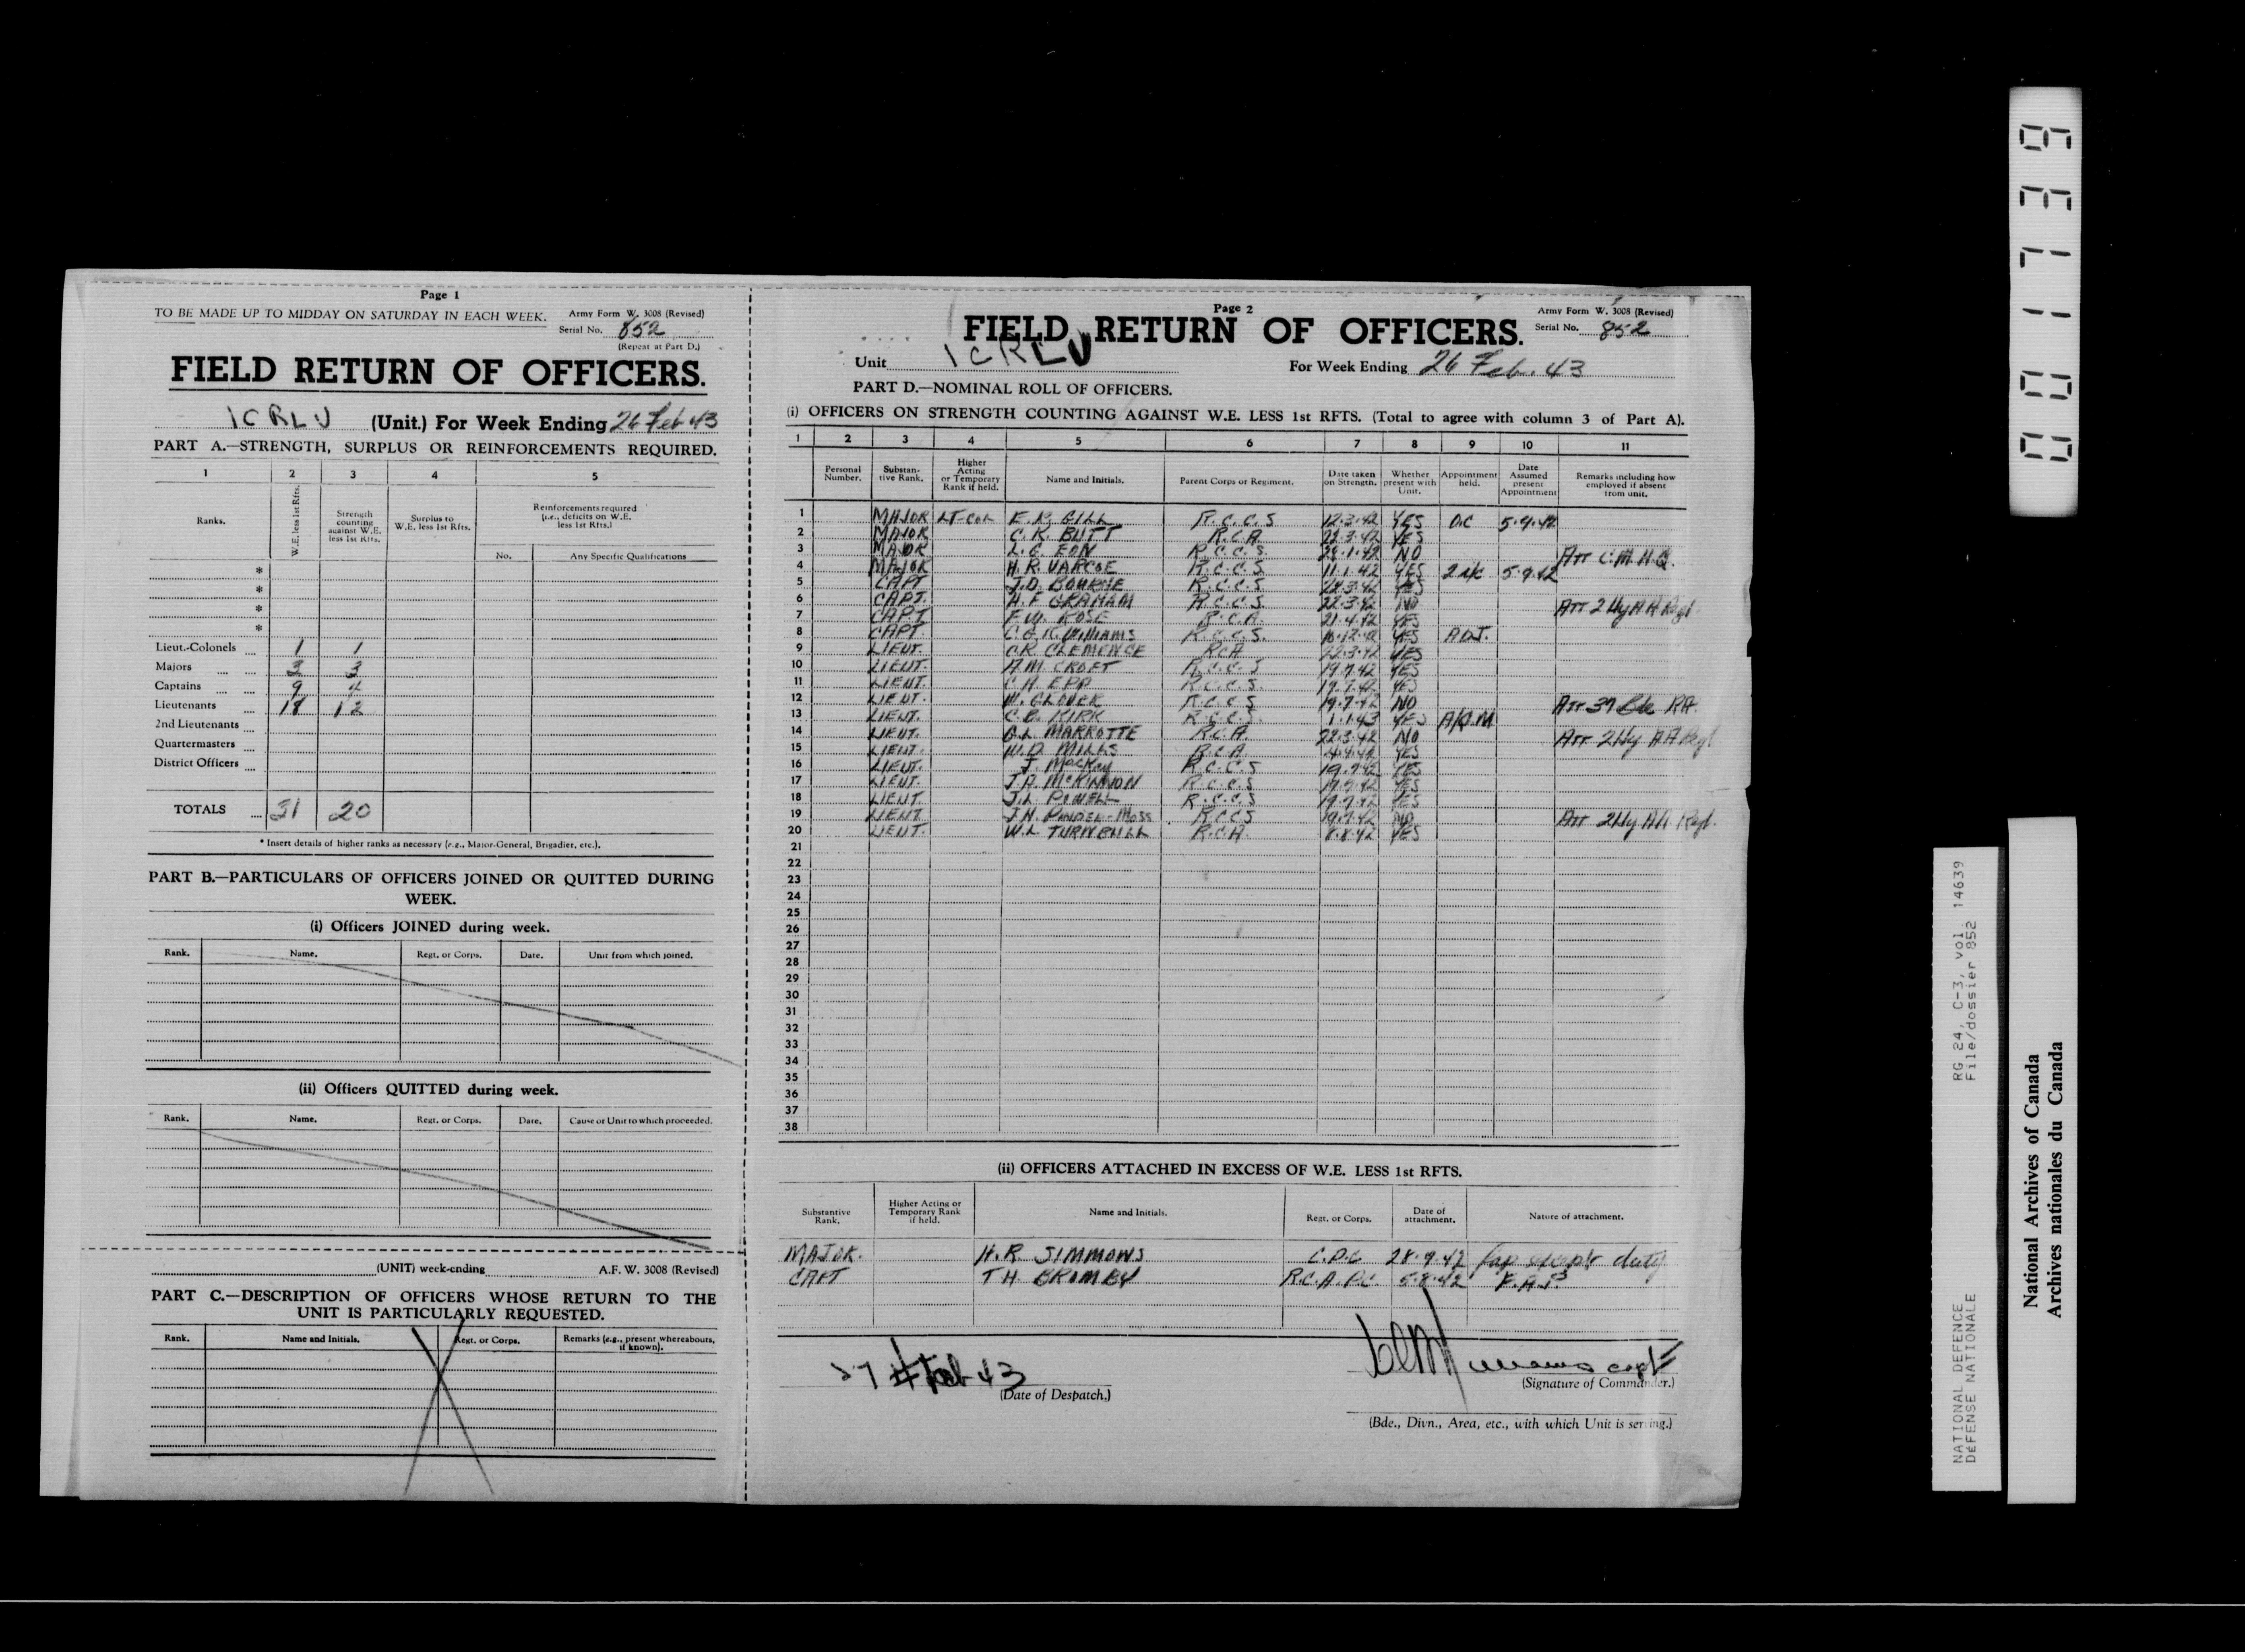 Page 1
TO BE MADE UP TO MIDDAY ON SATURDAY IN EACH WEEK.
Army Form W. 3008 (Revised)
Serial No. 852
(Repeat at Part D.)
FIELD RETURN OF OFFICERS.
1 C R L U (Unit.) For Week Ending 26 Feb 43
PART A.—STRENGTH, SURPLUS OR REINFORCEMENTS REQUIRED.
1 2 3 4 5
Ranks. W.E. less 1st Rfts. Strength counting against W.E. less 1st Rfts. Surplus to W.E. less 1st Rfts. Reinforcements required (i.e., deficits on W.E. less 1st Rfts.)
No. Any Specific Qualifications
*
*
*
*
Lieut.-Colonels .... 1 1
Majors .... .... 3 3
Captains .... .... 9 4
Lieutenants .... 18 12
2nd Lieutenants ....
Quartermasters ....
District Officers ....
TOTALS .... 31 20
* Insert details of higher ranks as necessary (e.g., Major-General, Brigadier, etc.).
PART B.—PARTICULARS OF OFFICERS JOINED OR QUITTED DURING
WEEK.
(i) Officers JOINED during week.
Rank. Name. Regt. or Corps. Date. Unit from which joined.
(ii) Officers QUITTED during week.
Rank. Name. Regt. or Corps. Date. Cause or Unit to which proceeded.
(UNIT) week-ending A.F. W. 3008 (Revised)
PART C.—DESCRIPTION OF OFFICERS WHOSE RETURN TO THE
UNIT IS PARTICULARLY REQUESTED.
Rank. Name and Initials. Regt. or Corps. Remarks (e.g., present whereabouts, if known).
Page 2
Army Form W. 3008 (Revised)
Serial No. 852
FIELD RETURN OF OFFICERS.
Unit 1 C R L U For Week Ending 26 Feb. 43
PART D.—NOMINAL ROLL OF OFFICERS.
(i) OFFICERS ON STRENGTH COUNTING AGAINST W.E. LESS 1st RFTS. (Total to agree with column 3 of Part A).
1 2 3 4 5 6 7 8 9 10 11
Personal Number. Substantive Rank. Higher Acting or Temporary Rank if held. Name and Initials. Parent Corps or Regiment. Date taken on Strength. Whether present with Unit. Appointment held. Date Assumed present Appointment Remarks including how employed if absent from unit.
1 MAJOR LT-COL GILL R.C.C.S 12.3.42 YES O.C 5.9.42
2 MAJOR C.K. BUTT R.C.A. 22.3.42 YES
3 MAJOR L.G. EON R.C.C.S. NO Att C.M.H.Q.
4 MAJOR H.R. VARCOE R.C.C.S 11.1.42 YES 2 i/c 5.9.42
5 CAPT J.D. BOURNE R.C.C.S 22.3.42 YES
6 CAPT. H.F GRAHAM R.C.C.S. 22.3.42 NO Att 2 Hy AA Regt.
7 CAPT F.W. ROSE R.C.A. 21.4.42 YES
8 CAPT. C.G.R. Williams R.C.C.S. YES ADJ.
9 LIEUT. C.R. CLEMENCE RCA 22.3.42 YES
10 LIEUT. H.M. CROFT R.C.C.S 19.7.42 YES
11 LIEUT. C.A. EPP R.C.C.S. 19.7.42 YES
12 LIEUT. W. GLOVER R.C.C.S 19.7.42 NO Att 39 Bde RA.
13 LIEUT. C.B. KIRK R.C.C.S. 1.1.43 YES A/Q.M
14 LIEUT. MARROTTE R.C.A. 22.3.42 NO Att 2 Hy AA Regt
15 LIEUT. W.D. MILLS R.C.A. YES
16 LIEUT. J. MacKay R.C.C.S 19.7.42 YES
17 LIEUT. J.A. McKINNON R.C.C.S 19.7.42 YES
18 LIEUT J.L. POWELL R.C.C.S 19.7.42 YES
19 LIEUT J.H. PINDER-MOSS R.C.C.S 19.7.42 NO Att 2 Hy AA Regt.
20 LIEUT. W.L. TURNBULL R.C.A. 8.8.42 YES
21
22
23
24
25
26
27
28
29
30
31
32
33
34
35
36
37
38
(ii) OFFICERS ATTACHED IN EXCESS OF W.E. LESS 1st RFTS.
Substantive Rank. Higher Acting or Temporary Rank if held. Name and Initials. Regt. or Corps. Date of attachment. Nature of attachment.
MAJOR. H.R. SIMMONS C.D.C 28.9.42 duty
CAPT T.H. BROMBY R.C.A.P.C. 5.8.42
27 Feb 43
(Date of Despatch.)
Williams capt
(Signature of Commander.)
(Bde., Divn., Area, etc., with which Unit is serving.)
001739
RG 24, C-3, vol. 14639
File/dossier 852
NATIONAL DEFENCE
DÉFENSE NATIONALE
National Archives of Canada
Archives nationales du Canada